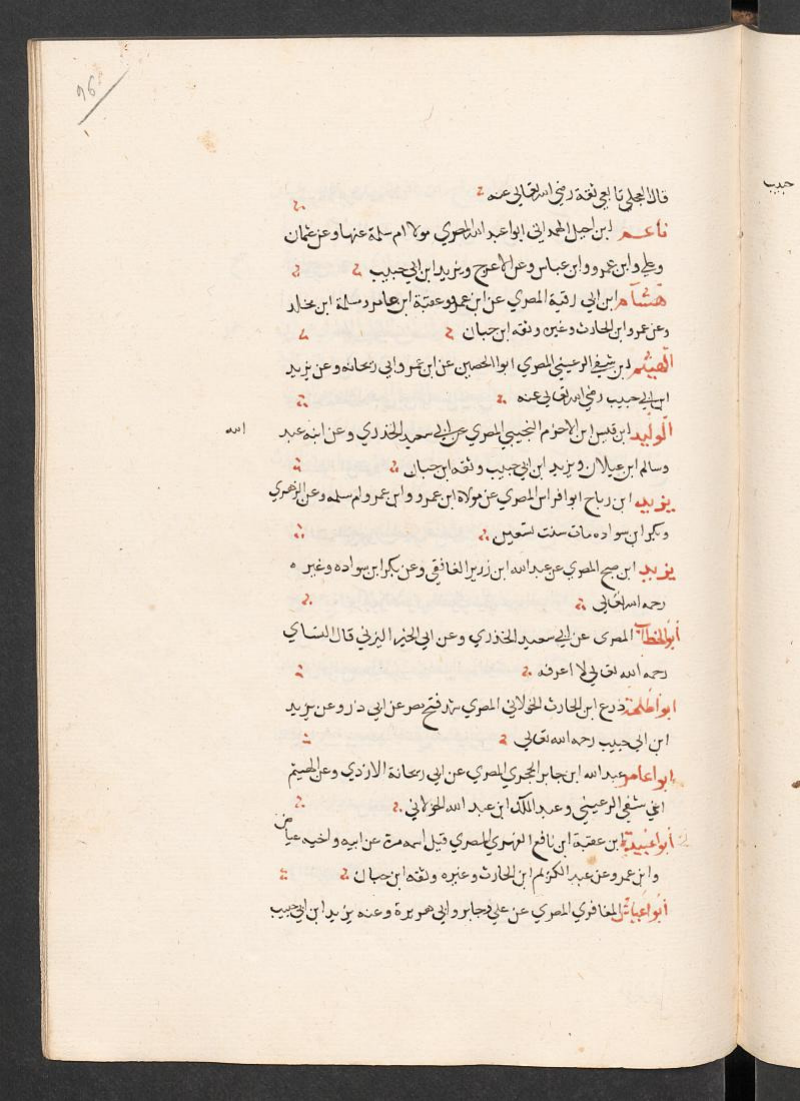 96
قال العجلي تابعي ثقة رضي الله تعالى عنه
ناعم ابن اجيل الهمداني ابوا عبد الله المصري مولا ام سلمة عنها وعن عثمان
وعلي وابن عمرو وابن عباس وعن الاعرج ويزيد ابن ابي حبيب
هشام ابن ابي رقية المصري عن ابن عمرو وعقبة ابن عامر ومسلمة ابن مخلد
وعن عمرو ابن الحارث وغيره وثقه ابن حبان
الهيثم ابن شفي الرعيني المصري ابوا الحصين عن ابن عمرو وابي ريحانه وعن يزيد
ابن ابي حبيب رضي الله تعالى عنه
الوليد ابن قيس ابن الاخرم التجيبي المصري عن ابي سعيد الخذري وعن ابنه عبد الله
وسالم ابن غيلان ويزيد ابن ابي حبيب وثقه ابن حبان
يزيد ابن رباح ابوا فراس المصري عن مولاه ابن عمرو وابن عمر وام سلمه وعن الزهري
وبكر ابن سواده مات سنت تسعين
يزيد ابن صبح المصري عن عبد الله ابن زرير الغافقي وعن بكر ابن سواده وغيره
رحمه الله تعالى
ابو الخطاب المصري عن ابي سعيد الخذري وعن ابي الخير اليزني قال النساي
رحمه الله تعالى لا اعرفه
ابوا طلحة ذرع ابن الحارث الخولاني المصري شهد فتح مصر عن ابي ذر وعن يزيد
ابن ابي حبيب رحمه الله تعالى
ابوا عامر عبد الله ابن جابر الحجري المصري عن ابي ريحانة الازدي وعن الهيثم
ابن شفي الرعيني وعبد الملك ابن عبد الله الخولاني
ابوا عبيدة ابن عقبة ابن نافع الفهري المصري قيل اسمه مرة عن ابيه واخيه عياض
وابن عمر وعن عبد الكريم ابن الحارث وغيره وثقه ابن حبان
ابوا عياش المغافري المصري عن علي وجابر وابي هريرة وعنه يزيد ابن ابي حبيب
حبيب